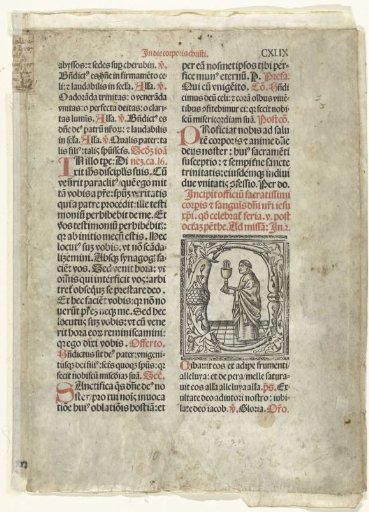 In die corporis christi. CXLIX
abyssos: ⁊ sedes sup̱ cherubin. ℣.
Bñdict⁹ es dñe in firmamẽto ce
li: ⁊ laudabilis in secľa. Alľa. ℣.
O adorãda trinitas: o venerãda
vnitas: o perfecta deitas: o clari
tas luminis. Alľa. ℣. Bñdict⁹ es
dñe de⁹ patrũ nr̃oꝝ: ⁊ laudabilis
in secľa. Alľa. ℣. Qualis pater: ta
lis fili⁹: talis spũs scũs. Scḋꝫ ioã
IN illo tpe: Di nẽz. ca. 16.
xit ihs discipľis suis. Cũ
venerit paraclit⁹ quẽ ego mit
tã vobis a pr̃e: spũꝫ veritatis
qui a patre procedit: ille testi
moniũ perhibebit de me. Et
vos testimoniũ perhibebit̃:
qꝛ ab initio mecũ estis. Hec
locut⁹ suꝫ vobis: vt nõ scãda
lizemini. Absqꝫ synagog̃ fa
ciẽt vos. Sed venit hora: vt
omnis qui interficit vos: arbi
tret̃ obsequiũ se prestare deo.
Et hec faciẽt vobis: qꝛ nõ no
uerũt pr̃eꝫ neqꝫ me. Sed hec
locut⁹ suꝫ vobis: vt cũ vene
rit hora eoꝝ reminiscamini:
qꝛ ego dixi vobis. Offerto.
Bñdictus sit de⁹ pater: vnigeni
tusqꝫ dei fili⁹: scũs quoqꝫ spũs: qꝛ
fecit nobiscũ miẽdiã suã. Sec̃.
SAnctifica q̃s dñe de⁹ no
ster: pro tui noĩs inuoca
tiõe hui⁹ oblatiõis hostiã: et
per eã nosmetipsos tibi per
fice mun⁹ eternũ. P. Prefa.
Qui cũ vnigẽito. Cõ. Bñdi
cimus deũ celi: ⁊ corã oĩbus viuẽ
tibus cõfitebimur ei: qꝛ fecit nobi
scũ misericordiam suã. Postcõ.
PRoficiat nobis ad salu
tẽ corporis: ⁊ anime dñe
deus noster: hui⁹ sacramẽti
susceptio: ⁊ sempitñe sancte
trinitatis: eiusdemqꝫ indiui
due vnitatis ꝯfessio. Per do.
Incipit officiũ sacratissimi
corpis ⁊ sanguis dñi nr̃i iesu
xpi. qď celebrat̃ feria. v. post
octa. pẽthe. Ad missã: In. 2.
Cibauit eos ex adipe frumenti
alleluya: et de petra melle satura
uit eos alľa alleluya alľa. p̃s. Ex
ultate deo adiutori nostro: iubi
late deo iacob. ℣. Gloria. Or̃o.